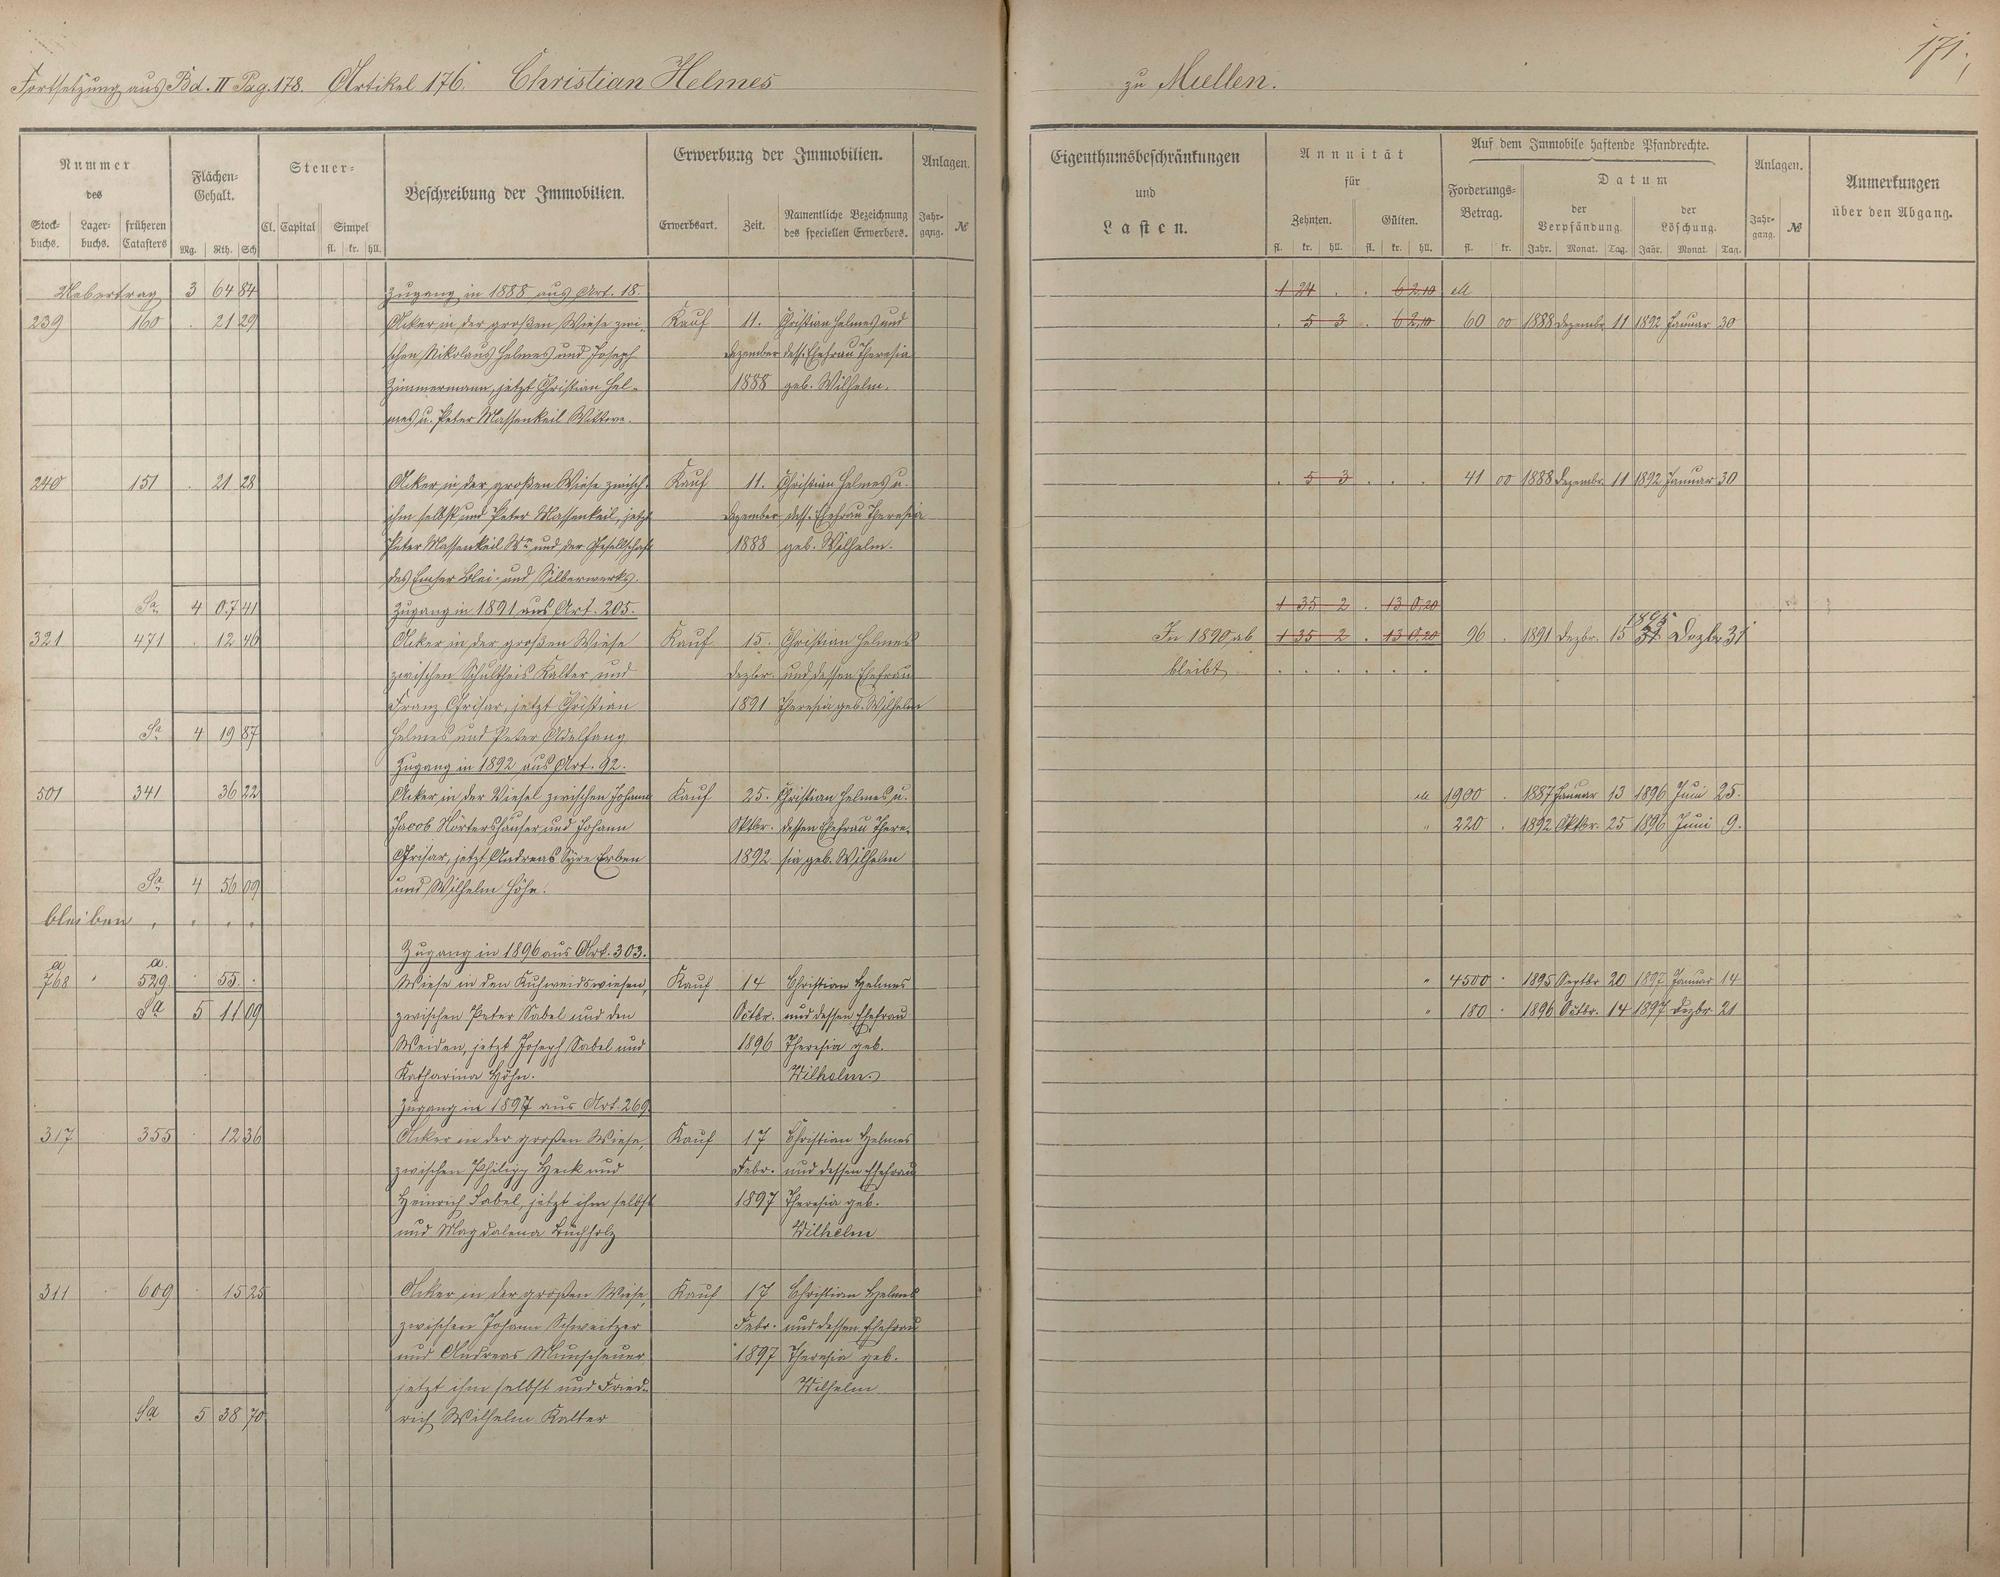 Fortsetzung aus Bd. II Pag. 178. Artikel 176. Christian Helmes
zu Muellen.
171.
Nummer
des
Stock-
buchs.
Lager-
buchs.
früheren
Catasters
Flächen-
Gehalt.
Mg. Rth. Sch
Steuer-
Cl. Capital Simpel
fl. kr. hll.
Beschreibung der Immobilien.
Erwerbung der Immobilien.
Erwerbsart. Zeit. Namentliche Bezeichnung
des speciellen Erwerbers.
Anlagen.
Jahr-
gang. №
Eigenthumsbeschränkungen
und
Lasten.
Annuität
für
Zehnten. Gülten.
fl. kr. hll. fl. kr. hll.
Auf dem Immobile haftende Pfandrechte.
Forderungs-
Betrag.
fl. kr.
Datum
der
Verpfändung.
Jahr. Monat. Tag.
der
Löschung.
Jahr. Monat. Tag.
Anlagen.
Jahr-
gang. №
Anmerkungen
über den Abgang.
Uebertrag 3 64 84 Zugang in 1888 aus Art. 18. 1 24 . . 6 2.10
239 160 . 21 29 Acker in der großen Wiese zwi- Kauf 11. Christian Helmes und . 5 3 . 6 2.10 60 00 1888 Dezembr. 11 1892 Januar 30
schen Nikolaus Helmes und Joseph Dezember dess. Ehefrau Theresia
Zimmermann, jetzt Christian Hel- 1888 geb. Wilhelm.
mes u. Peter Massenkeil Wittwe.
240 151 . 21 28 Acker in der großen Wiese zwisch. Kauf 11. Christian Helmes u. . 5 3 . . . 41 00 1888 Dezembr. 11 1892 Januar 30
ihm selbst und Peter Massenkeil, jetzt Dezember dess. Ehefrau Theresia
Peter Massenkeil We und der Gesellschaft 1888 geb. Wilhelm.
des Emser Blei- und Silberwerks.
Sa 4 07 41 Zugang in 1891 aus Art. 205. 1 35 2 . 13 0.20
321 471 . 12 46 Acker in der großen Wiese Kauf 15. Christian Helmes In 1890 ab 1 35 2 . 13 0.20 96 . 1891 Dezbr. 15 1895 Dezbr 31
zwischen Schultheis Kalter und Dezbr. und dessen Ehefrau bleibt . . . . . .
Franz Grisar, jetzt Christian 1891 Theresia geb. Wilhelm
Sa 4 19 87 Helmes und Peter Adelfang
Zugang in 1892 aus Art. 92.
501 341 36 22 Acker in der Viesel zwischen Johann Kauf 25. Christian Helmes u. 1900 . 1887 Januar 13 1896 Juni 25.
Jacob Nörtershäuser und Johann Oktbr. dessen Ehefrau There- " 220 . 1892 Oktbr. 25 1896 Juni 9.
Grisar, jetzt Andreas Syre Erben 1892 sia geb. Wilhelm
Sa 4 56 09 und Wilhelm Höhn.
bleiben . . . .
Zugang in 1896 aus Art. 303.
a a
768 " 529 . 55. . Wiese in den Kuhweidswiesen, Kauf 14 Christian Helmes " 4500 . 1895 Septbr 20 1897 Januar 14
Sa 5 11 09 zwischen Peter Sabel und den Octbr. und dessen Ehefrau " 180 . 1896 Octbr. 14 1897 Dezbr 21
Weiden, jetzt Joseph Sabel und 1896 Theresia geb.
Katharina Höhn. Wilhelm.
Zugang in 1897 aus Art. 269.
317 355 . 12 36 Acker in der großen Wiese, Kauf 17 Christian Helmes
zwischen Philipp Heck und Febr. und dessen Ehefrau
Heinrich Sabel, jetzt ihm selbst 1897 Theresia geb.
und Magdalena Buchholz Wilhelm
311 609 . 15 25 Acker in der großen Wiese, Kauf 17 Christian Helmes
zwischen Johann Schweitzer Febr. und dessen Ehefrau
und Andreas Munscheuer 1897 Theresia geb.
jetzt ihm selbst und Fried- Wilhelm
Sa 5 38 70 rich Wilhelm Kalter